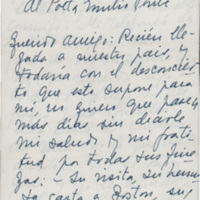 Al Poeta Emilio
Querido amigo: Recién lle-
gada a nuestro país, y
todavía con el desconcier-
to que esto supone para
mí, no quiero que pasen
más días sin decirle
mi saludo y mi grati-
tud por todas sus fine-
zas: – Su visita, su hermo-
sa carta a Boston, sus